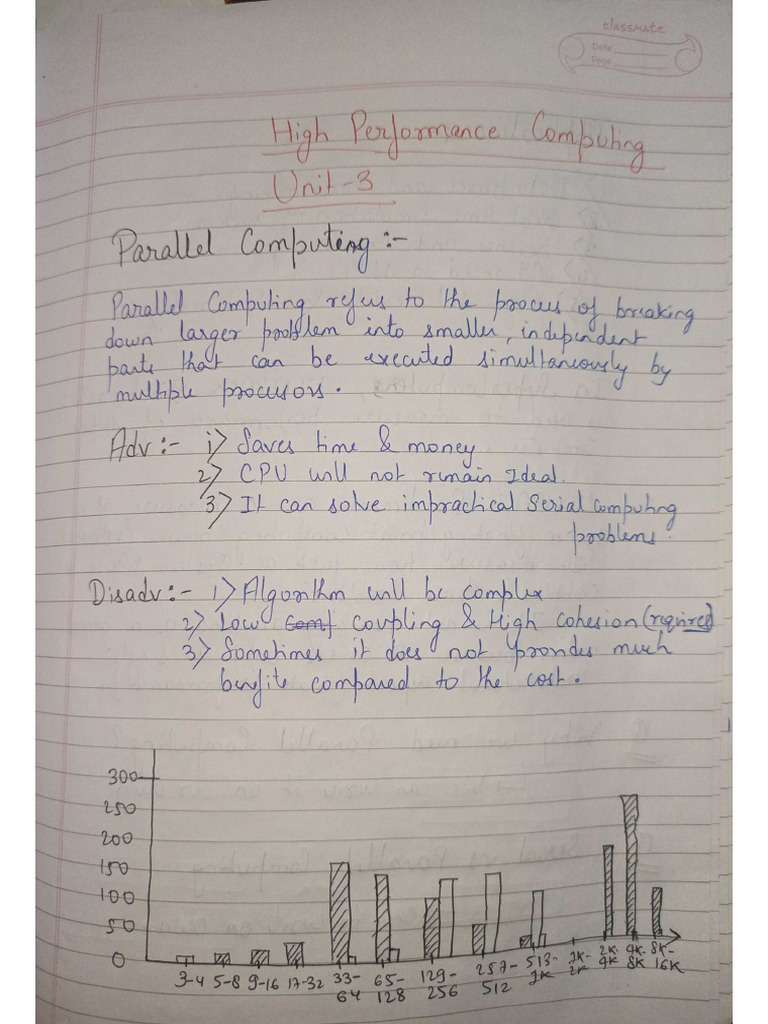 classmate
Date
Page
High Performance Computing
Unit-3
Parallel Computing :-
Parallel Computing refers to the process of breaking
down larger problem into smaller, independent
parts that can be executed simultaneously by
multiple processors.
Adv :- 1) Saves time & money
2) CPU will not remain Ideal.
3) It can solve impractical Serial computing
problems.
Disadv :- 1) Algorithm will be complex
2) Low coupling & High cohesion (required)
3) Sometimes it does not provides much
benefits compared to the cost.
300
250
200
150
100
50
0
3-4 5-8 9-16 17-32 33-64 65-128 129-256 257-512 513-1K 1K-2K 2K-4K 4K-8K 8K-16K